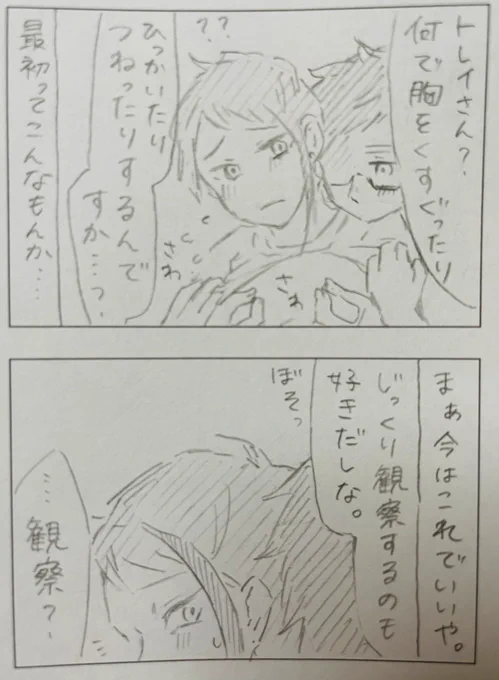 トレイさん？
何で胸をくすぐったり
ひっかいたり
つねったりするんで
すか…？
？？
さわ
さわ
最初ってこんなもんか…
まぁ今はこれでいいや。
じっくり観察するのも
好きだしな。
ぼそっ
…観察？